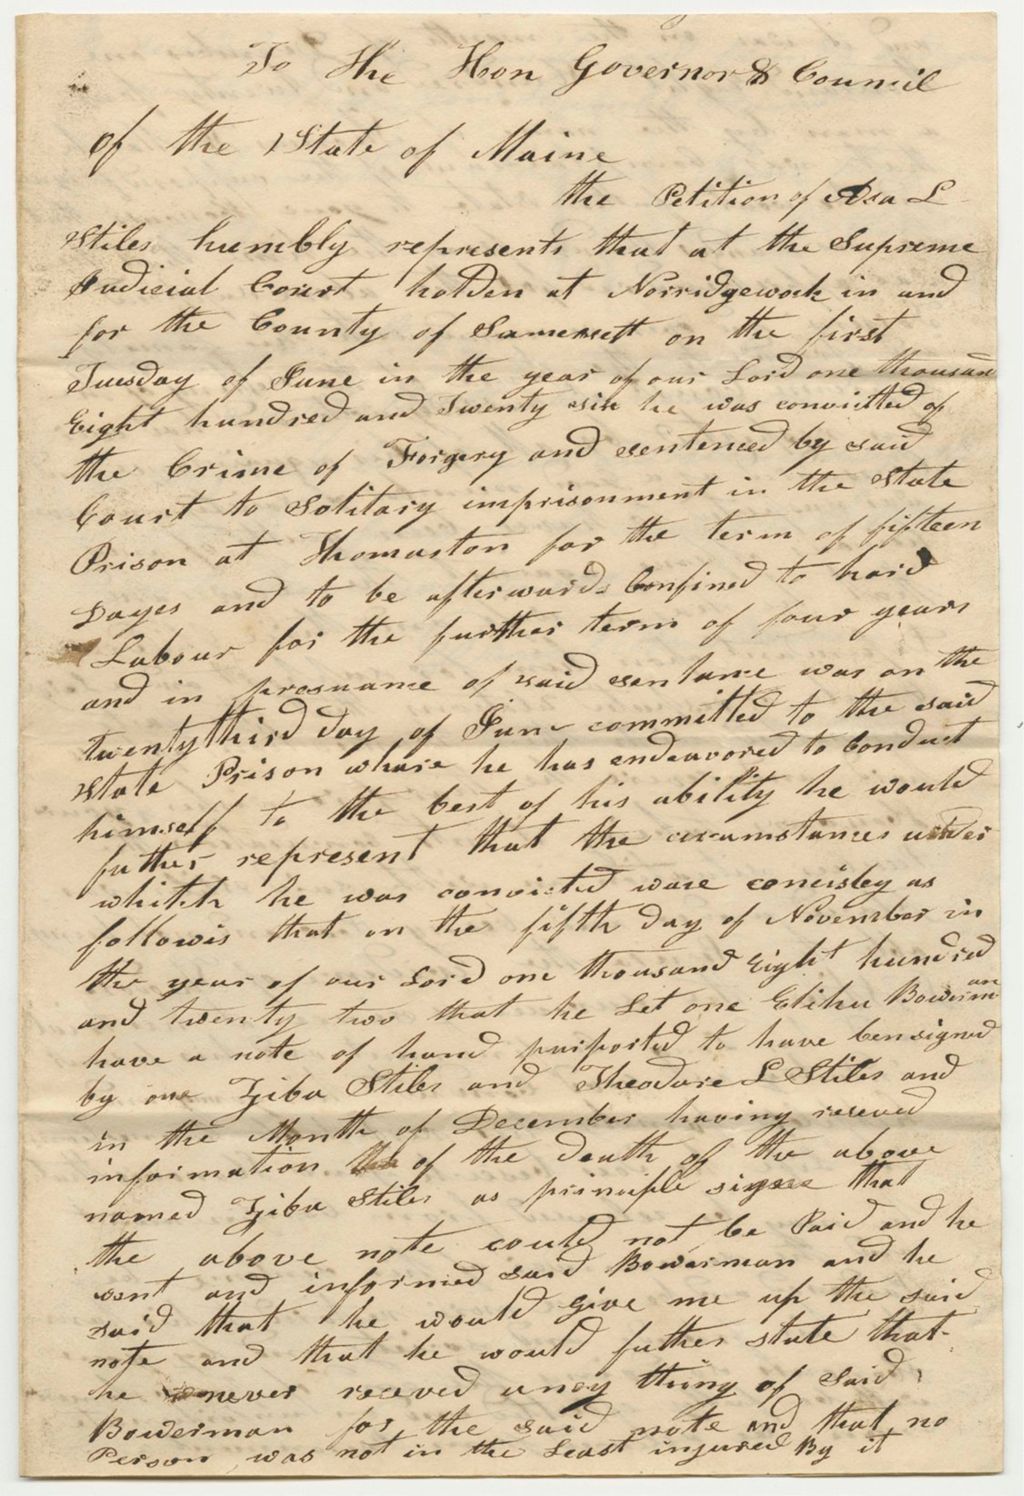 To the Hon Governor & Council
of the State of Maine
the Petition of Asa L
Stiles humbly represents that at the Supreme
Judicial Court holden at Norridgewock in and
for the County of Somersett on the first
Tuesday of June in the year of our Lord one thousand
Eight hundred and Twenty six he was convicted of
the Crime of Forgery and sentenced by said
Court to Solitary imprisonment in the State
Prison at Thomaston for the term of fifteen
Dayes and to be afterwards Confined to hard
Labour for the further term of four years
and in prosuance of said sentance was on the
twenty third day of June committed to the said
State Prison whare he has endeavored to Conduct
himself to the best of his ability he would
futher represent that the circumstances under
whitch he was convicted ware concisley as
followis that on the fifth day of November in
the year of our Lord one thousand Eight hundred
and twenty two that he Let one Elihu Bowerman
have a note of hand purported to have ben signed
by one Ziba Stiles and Theodore L Stiles and
in the Month of December having reseved
information of the death of the above
named Ziba Stiles as principle signer that
the above note could not be Paid and he
went and informed said Bowerman and he
said that he would give me up the said
note and that he would futher state that
he never receved aney thing of Said
Bowerman for the said note and that no
Person was not in the Least injured By it